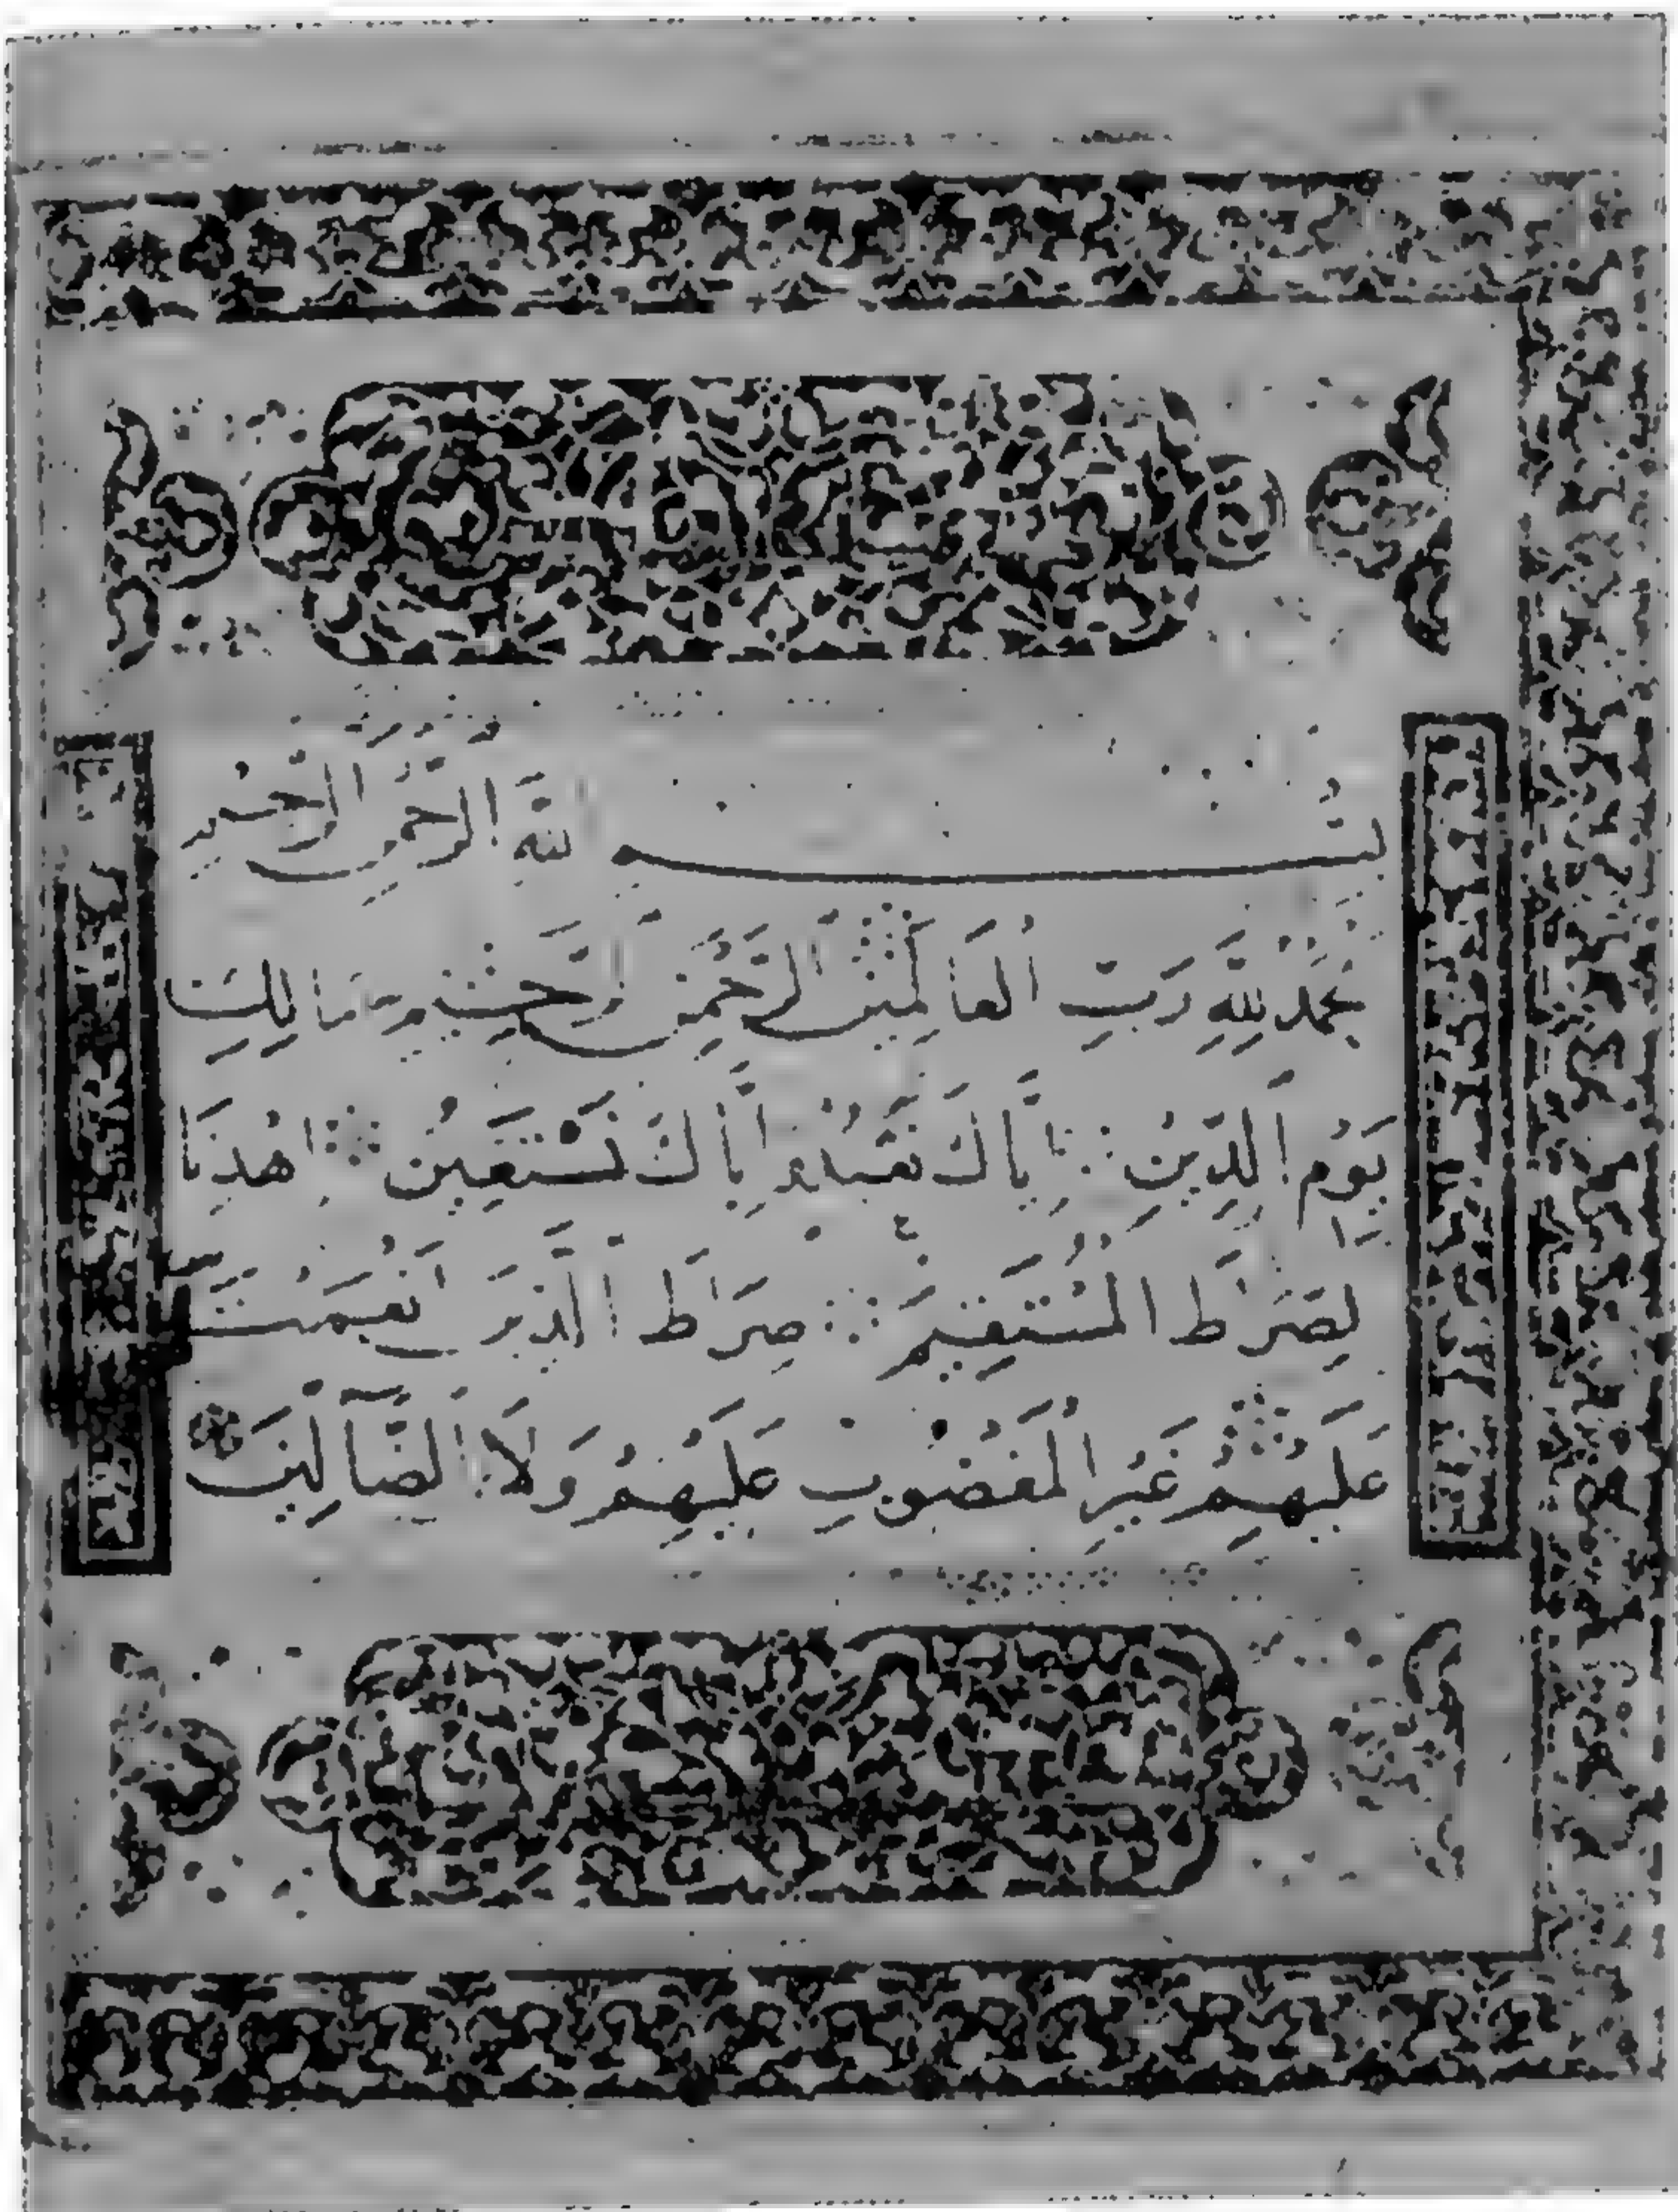 بِسْمِ اللَّهِ الرَّحْمٰنِ الرَّحِيمِ
الْحَمْدُ لِلَّهِ رَبِّ الْعَالَمِينَ الرَّحْمٰنِ الرَّحِيمِ مَالِكِ
يَوْمِ الدِّينِ إِيَّاكَ نَعْبُدُ وَإِيَّاكَ نَسْتَعِينُ اهْدِنَا
الصِّرَاطَ الْمُسْتَقِيمَ صِرَاطَ الَّذِينَ أَنْعَمْتَ
عَلَيْهِمْ غَيْرِ الْمَغْضُوبِ عَلَيْهِمْ وَلَا الضَّالِّينَ